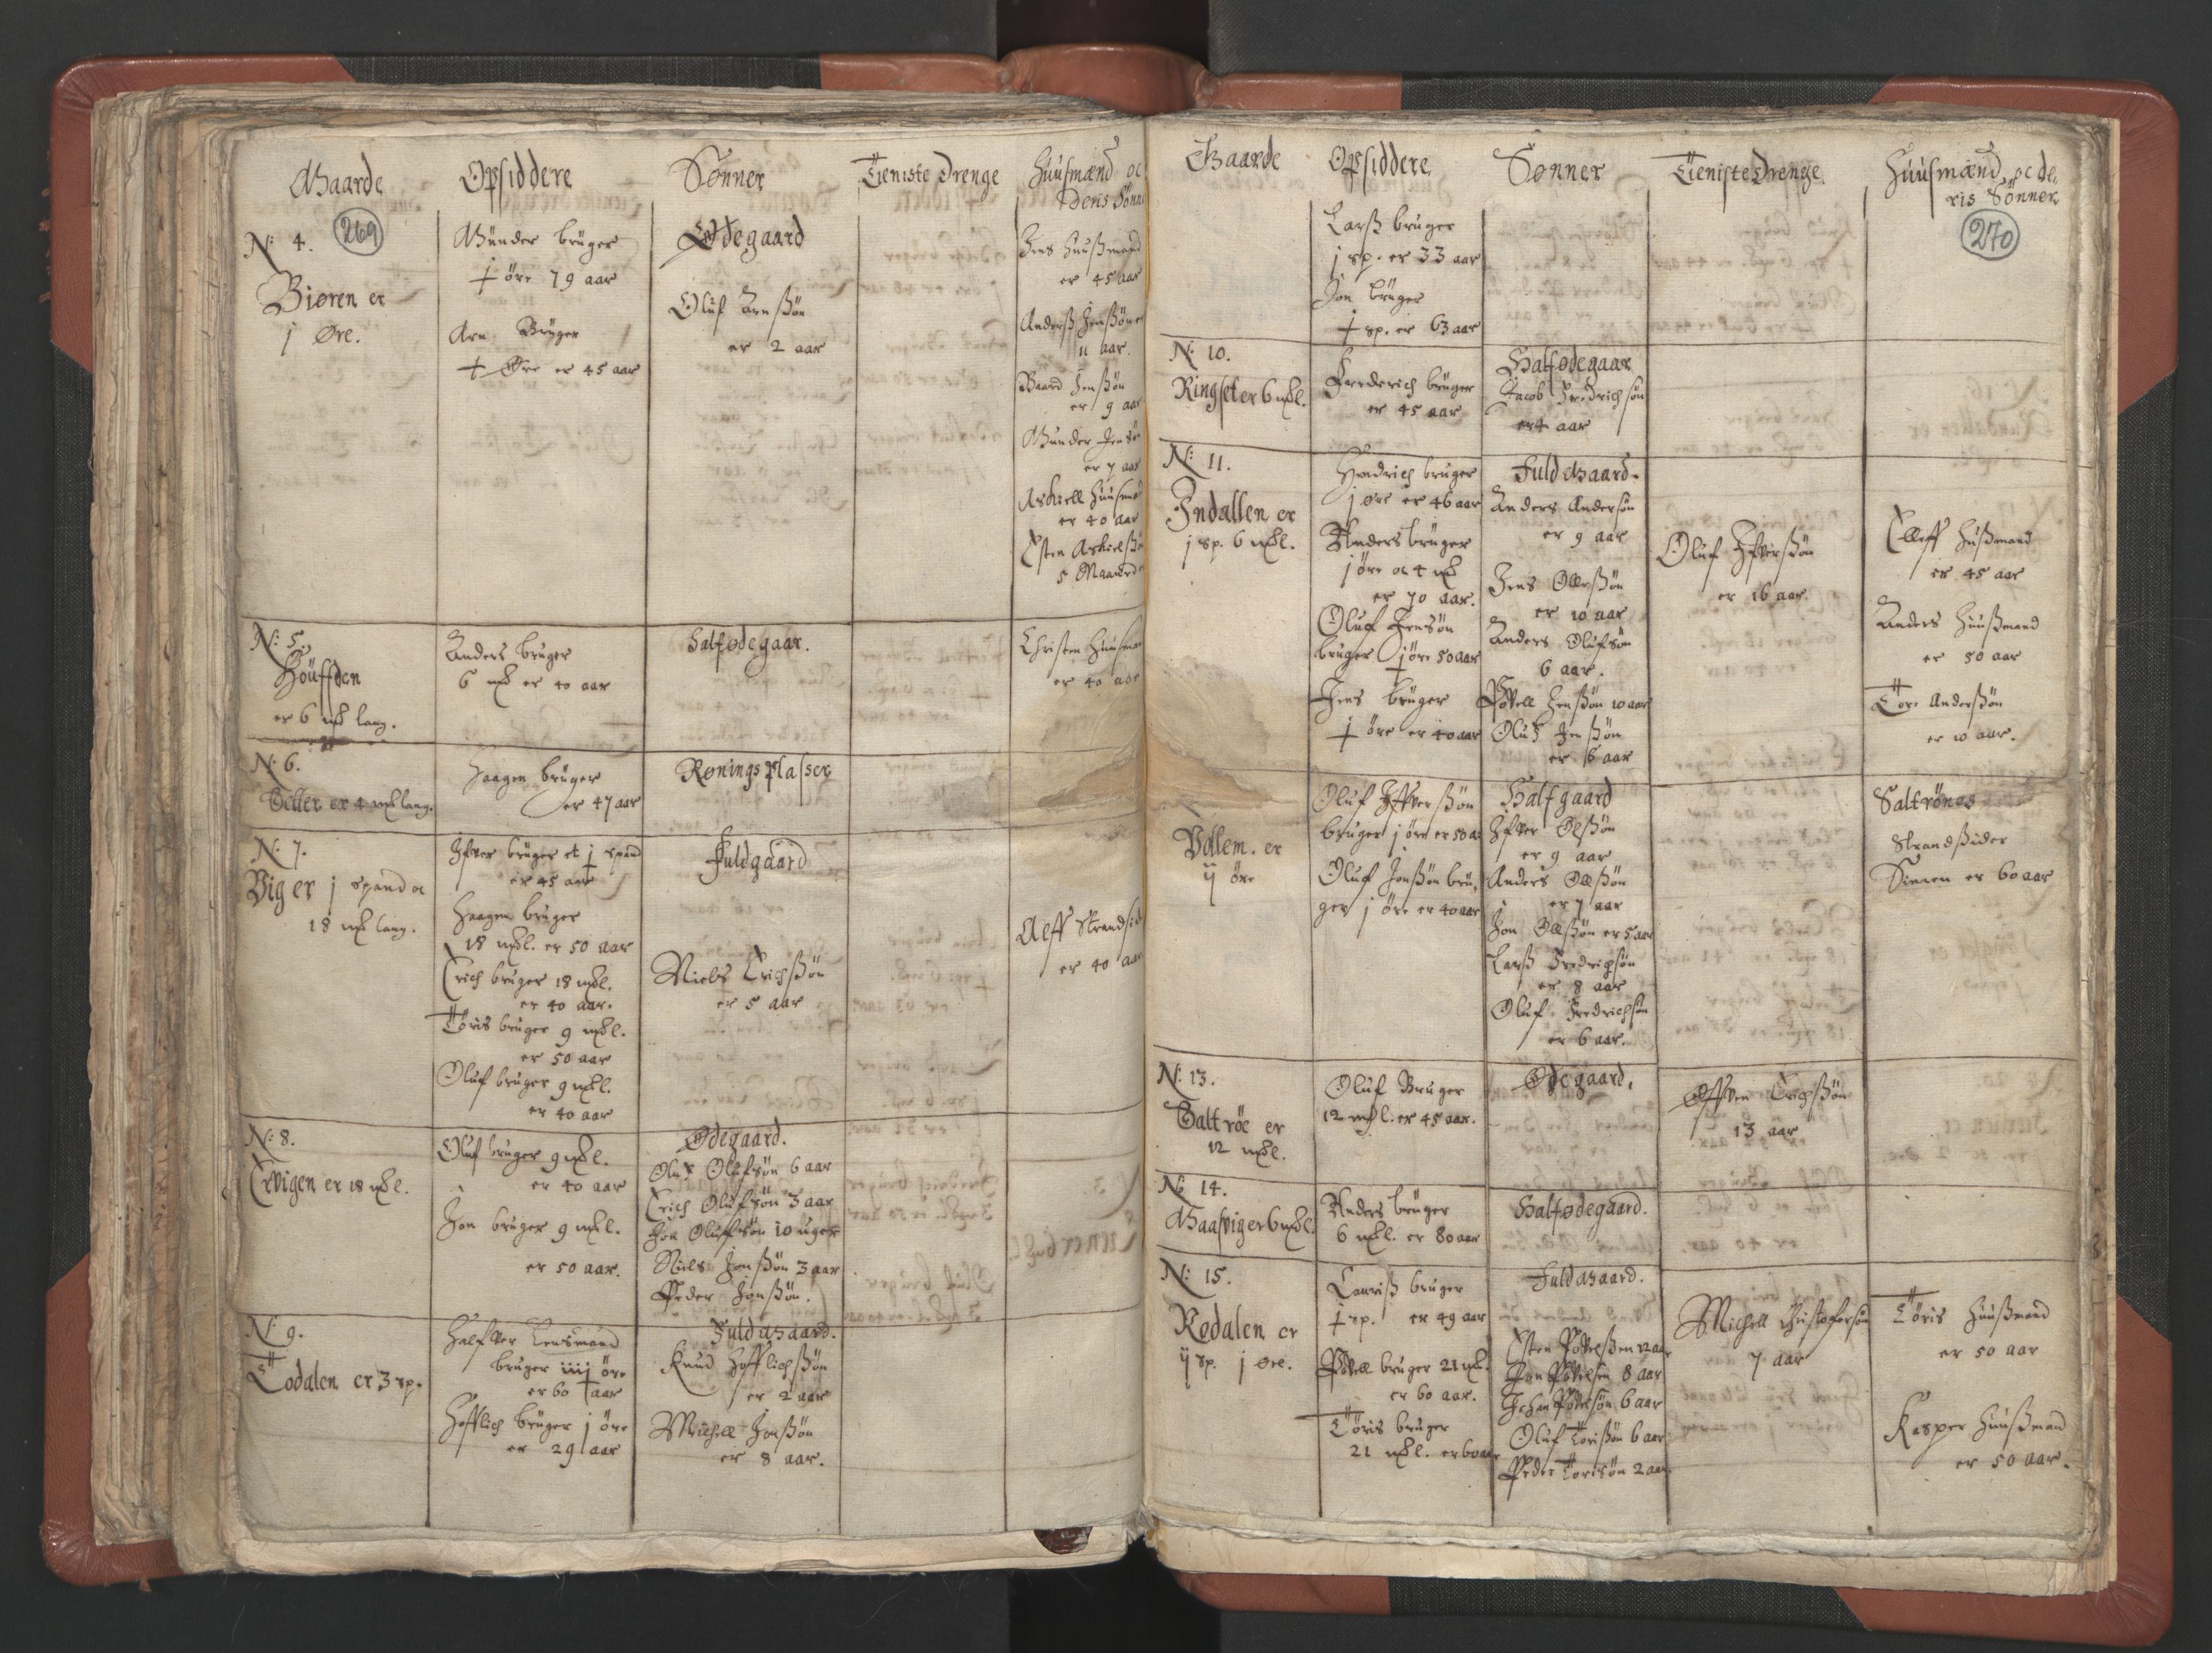 Gaarde
Opsiddere
Sønner
Tieniste Drenge
Huusmænd oc
Deris Sønne
269
N: 4.
Biøren er
j Øre.
Gunder bruger
øre 79 aar
Arn Bruger
Øre er 45 aar
Ødegaard
Oluf Arnßøn
er 2 aar
Jens Huußmand
er 45 aar
Anderß Jenßøn er
11 aar.
Baard Jenßøn
er 9 aar
Gunder Jensøn
er 7 aar
Askiell Huusmand
er 40 aar
Esten Askielßøn
5 Maaneder
N: 5.
Høuffden
er 6 mk lang.
Anders bruger
6 mk er 40 aar
Halfødegaar.
Christen Huusman
er 40 aar
N: 6.
Setter er 4 mk lang.
Haagen bruger
er 47 aar
Rønings Plasser
N: 7.
Vig er j spand oc
18 mk lang.
Ifver bruger et j spand
er 45 aar
Haagen bruger
18 mkl. er 50 aar
Erich bruger 18 mkl.
er 40 aar.
Tøris bruger 9 mkl.
er 50 aar
Oluf bruger 9 mkl.
er 40 aar
Fuldgaard
Niels Erichßøn
er 5 aar
Alff Strandsid
er 40 aar
N: 8.
Ervigen er 18 mkl.
Oluf bruger 9 mkl.
er 40 aar
Jon bruger 9 mkl.
er 50 aar.
Ødegaard.
Oluf Olufsøn 6 aar
Erich Olufsøn 3 aar
Jon Oluffsøn 10 uger
Niels Jonßøn 3 aar
Peder Jonßøn.
N: 9.
Todalen er 3 sp.
Halfver Lensmand
bruger iiij øre
er 60 aar
Hofflich bruger j øre
er 29 aar
Fuldgaard.
Knud Hofflichßøn
er 2 aar
Michell Jonßøn
er 8 aar.
Gaarde
Opsiddere
Sønner
Tieniste Drenge
Huusmænd oc de,
ris Sønner
270
Larß bruger
j sp. er 33 aar
Jon bruger
sp. er 63 aar
N: 10.
Ringset er 6 mkl.
Frederich bruger
er 45 aar
Halfødegaar
Jacob Fredrichsøn
er 4 aar
N: 11.
Indallen er
j sp. 6 mkl.
Hendrich bruger
j øre er 46 aar
Anders bruger
j øre oc 4 mk
er 70 aar.
Oluf Jensøn
bruger j øre 50 aar
Jens bruger
øre er 40 aar
Fuld Gaard.
Anders Andersøn
er 9 aar
Jens Olleßøn
er 10 aar
Anders Olufsøn
6 aar.
Povell Jenßøn 10 aar
Oluf Jenßøn
er 6 aar
Oluf Ifverßøn
er 16 aar.
Elleff Hußmand
er 45 aar
Anders Huußmand
er 50 aar
Tore Anderßøn
er 10 aar.
Vdllem. er
ij øre
Oluf Iffverßøn
bruger j øre er 50 a
Oluf Jonßøn bru,
ger j øre er 40 aar
Halfgaard
Ifver Olßøn
er 9 aar
Anders Olßøn
er 7 aar
Jon Olßøn er 5 aar
Larß Fredrichsøn
er 8 aar
Oluf Fredrichsøn
er 6 aar.
Saltrønes
Strandßider
Simen er 60 aar
N: 13.
Saltrøe er
12 mkl.
Oluf Bruger
12 mkl. er 45 aar.
Ødegaard,
Øffven Erichßøn
13 aar
N: 14.
Gaasvig er 6 mkl.
Anders bruger
6 mkl. er 80 aar
Halfødegaard.
N: 15.
Rodalen er
ij sp. j øre.
Lauriß bruger
sp. er 49 aar
Povell bruger 21 mk.
er 60 aar.
Tøris bruger
21 mkl. er 60 aar
Fuldgaard.
Esten Povelßen 12 aar
Jon Povelsen 8 aar
Johan Povelsøn 6 aar
Oluf Torisøn 6 aar
Peder Torisøn 2 aar
Michell Christofersøn
7 aar
Tøris Huußmand
er 50 aar
Kasper Huußmand
er 50 aar.